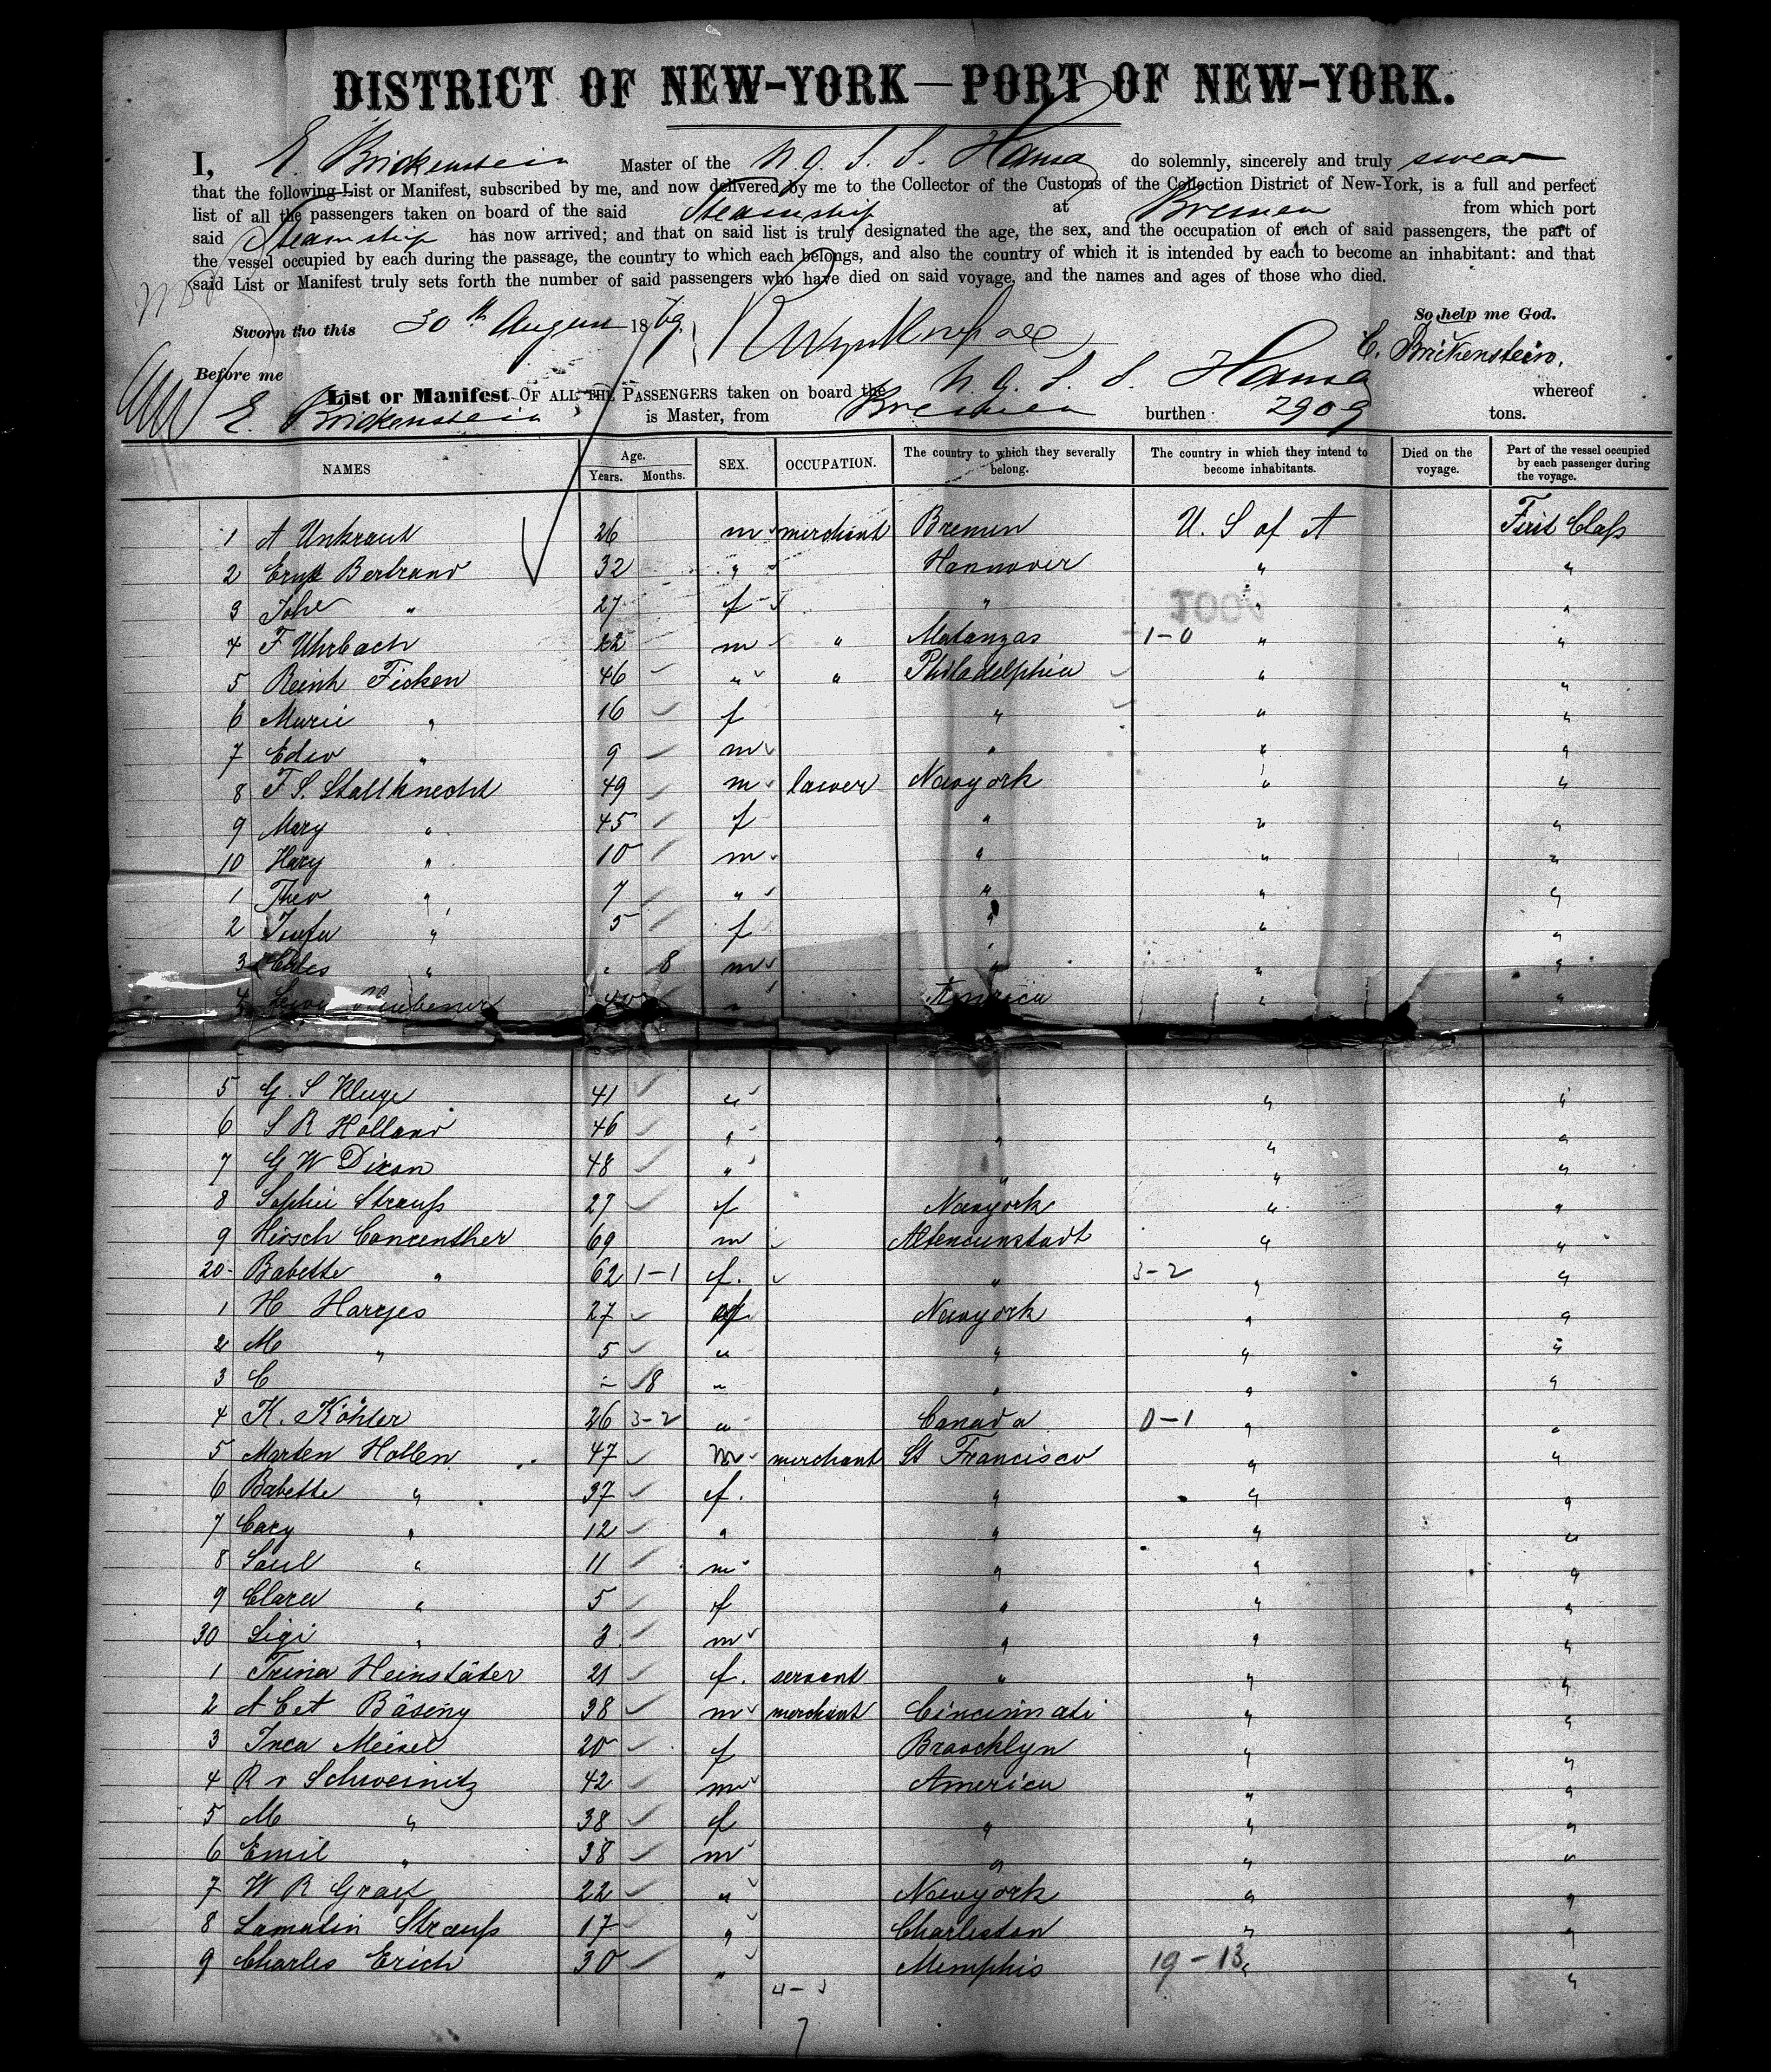 DISTRICT OF NEW-YORK—PORT OF NEW-YORK.
I, E. Brickenstein Master of the N. G. S. S. Hansa do solemnly, sincerely and truly swear
that the following List or Manifest, subscribed by me, and now delivered by me to the Collector of the Customs of the Collection District of New-York, is a full and perfect
list of all the passengers taken on board of the said Steamship at Bremen from which port
said Steamship has now arrived; and that on said list is truly designated the age, the sex, and the occupation of each of said passengers, the part of
the vessel occupied by each during the passage, the country to which each belongs, and also the country of which it is intended by each to become an inhabitant: and that
said List or Manifest truly sets forth the number of said passengers who have died on said voyage, and the names and ages of those who died.
So help me God.
Sworn tho this 30th August 1869
E. Brickenstein.
Before me
List or Manifest OF ALL THE PASSENGERS taken on board the N. G. S. S. Hansa whereof
E. Brickenstein is Master, from Bremen burthen 2909 tons.
NAMES Age. Years. Months. SEX. OCCUPATION. The country to which they severally belong. The country in which they intend to become inhabitants. Died on the voyage. Part of the vessel occupied by each passenger during the voyage.
1 A Unkraut 26 m merchant Bremen U. S of A First Class
2 Ernst Bertrand 32 " Hannover " "
3 " 27 f " " "
4 F Uhrbach 22 m " Matanzas 1-0 " "
5 Reinh Ficken 46 " " Philadelphia " "
6 Marie " 16 f " " "
7 " 9 m " " "
8 F S Stallknecht 49 m lawer Newyork " "
9 Mary " 45 f " " "
10 Hary " 10 m " " "
1 Theo " 7 " " " "
2 " 5 f " " "
3 " " 8 m " " "
4 " America " "
5 G. S Kluge 41 " " " "
6 S R Holland 46 " " " "
7 G W Dixon 48 " " " "
8 Sophie Strauss 27 f Newyork " "
9 Hirsch 69 m Altencunstadt " "
20 Babette " 62 1-1 f. " 3-2 " "
1 H Harges 27 f Newyork " "
2 M " 5 " " " "
3 C - 8 " " " "
4 K. Köhler 26 3-2 " Canada 0-1 " "
5 Morten Hollen 47 m merchant St Francisco " "
6 Babette " 37 f. " " "
7 Cary " 12 " " " "
8 Saul " 11 m " " "
9 Clara " 5 f " " "
30 Sigi " 3 m " " "
1 Trina Heinstäter 21 f. servant " " "
2 A C A Bäseng 38 m merchant Cincinnati " "
3 Meisel 20 f Broochlyn " "
4 R v Schweinitz 42 m America " "
5 M " 38 f " " "
6 Emil " 38 m " " "
7 W R Graef 22 " Newyork " "
8 Strauss 17 " Charleston " "
9 Charles Erich 30 " Memphis 19-13 " "